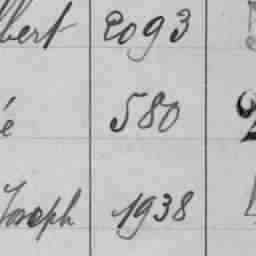 lbert 2093
é 580
Joseph 1938